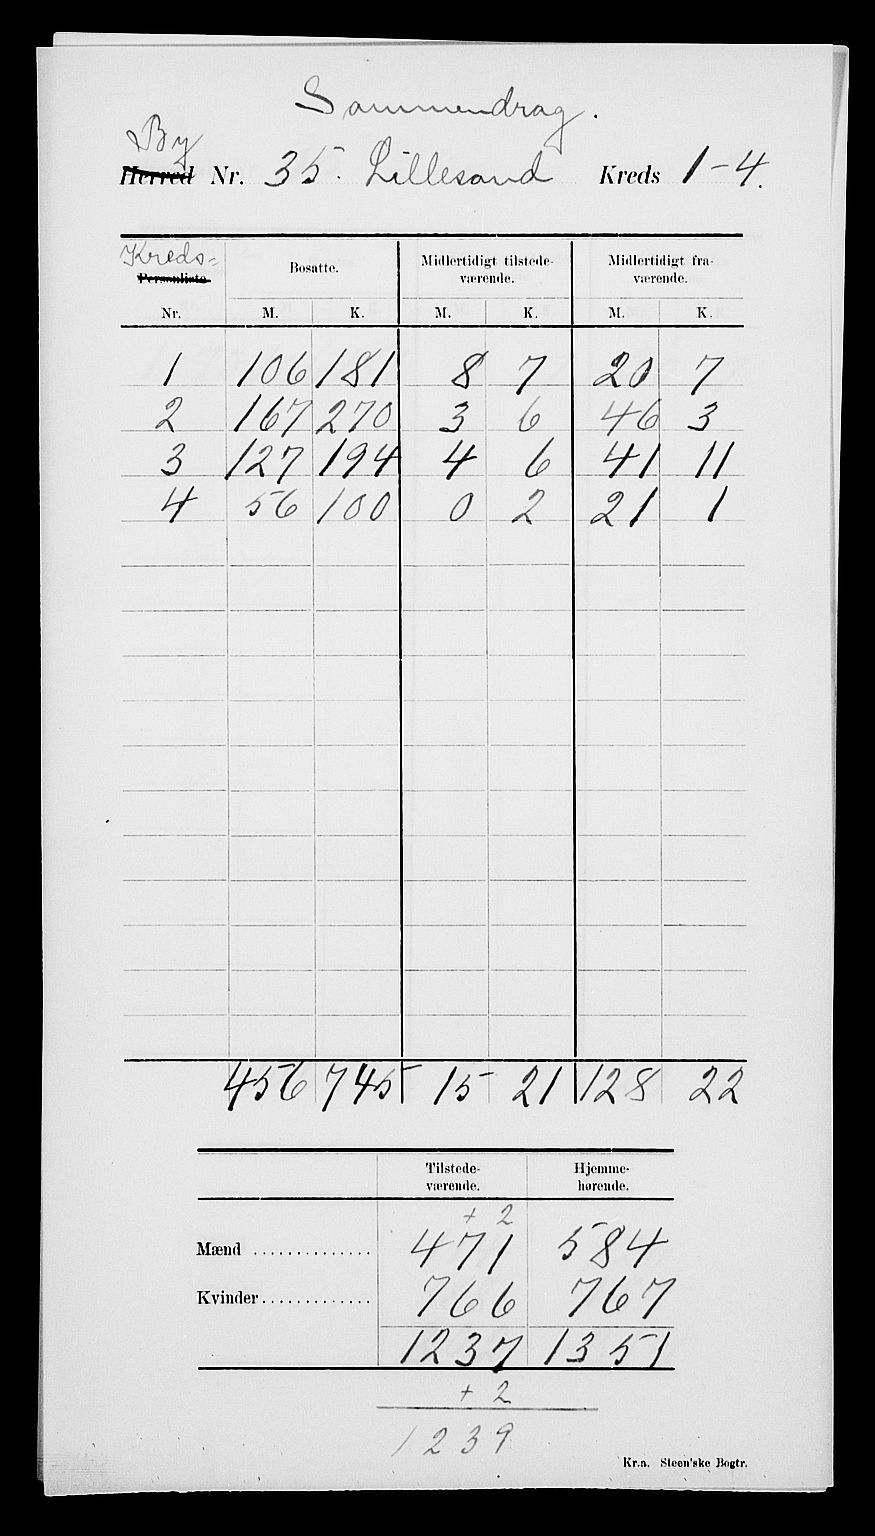 Sammendrag.
By
Herred Nr. 35. Lillesand Kreds 1-4.
Kreds-
Personliste Bosatte. Midlertidigt tilstede- Midlertidigt fra-
værende. værende.
Nr. M. K. M. K. M. K.
1 106 181 8 7 20 7
2 167 270 3 6 46 3
3 127 194 4 6 41 11
4 56 100 0 2 21 1
456 745 15 21 128 22
Tilstede- Hjemme-
værende. hørende.
+ 2
Mænd .............. 471 584
Kvinder............. 766 767
1237 1351
+ 2
1239
Kr.a. Steen'ske Bogtr.